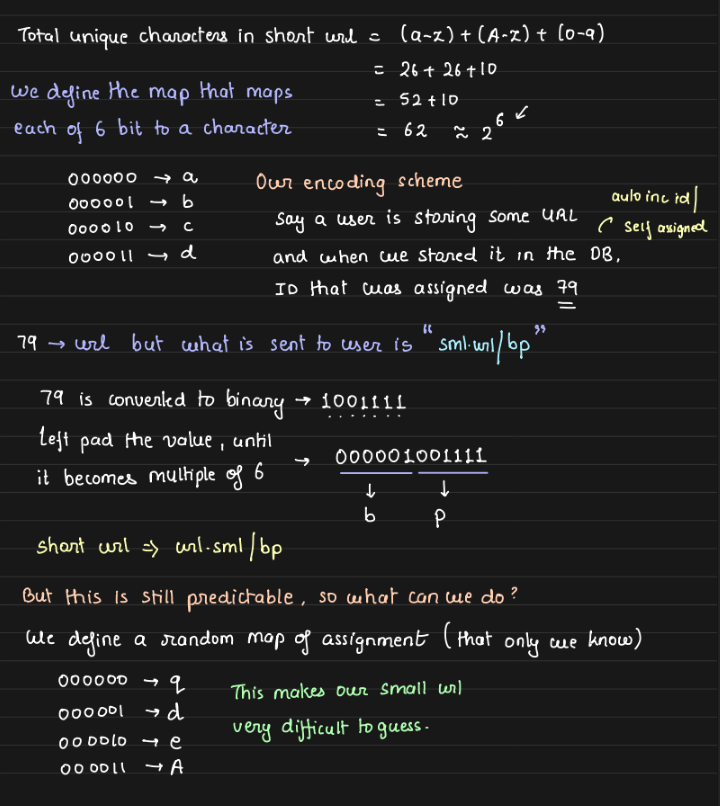 Total unique characters in short url = (a-z) + (A-Z) + (0-9)
= 26 + 26 + 10
= 52 + 10
= 62 ≈ 2^6 ↙
We define the map that maps
each of 6 bit to a character
000000 → a
000001 → b
000010 → c
000011 → d
Our encoding scheme
Say a user is storing some URL
and when we stored it in the DB,
ID that was assigned was 79
auto inc id /
self assigned
79 → url but what is sent to user is "sml.url/bp"
79 is converted to binary → 1001111
Left pad the value, until
it becomes multiple of 6
→ 000001001111
↓ ↓
b p
short url ⇒ url.sml/bp
But this is still predictable, so what can we do?
We define a random map of assignment (that only we know)
000000 → q
000001 → d
000010 → e
000011 → A
This makes our small url
very difficult to guess.